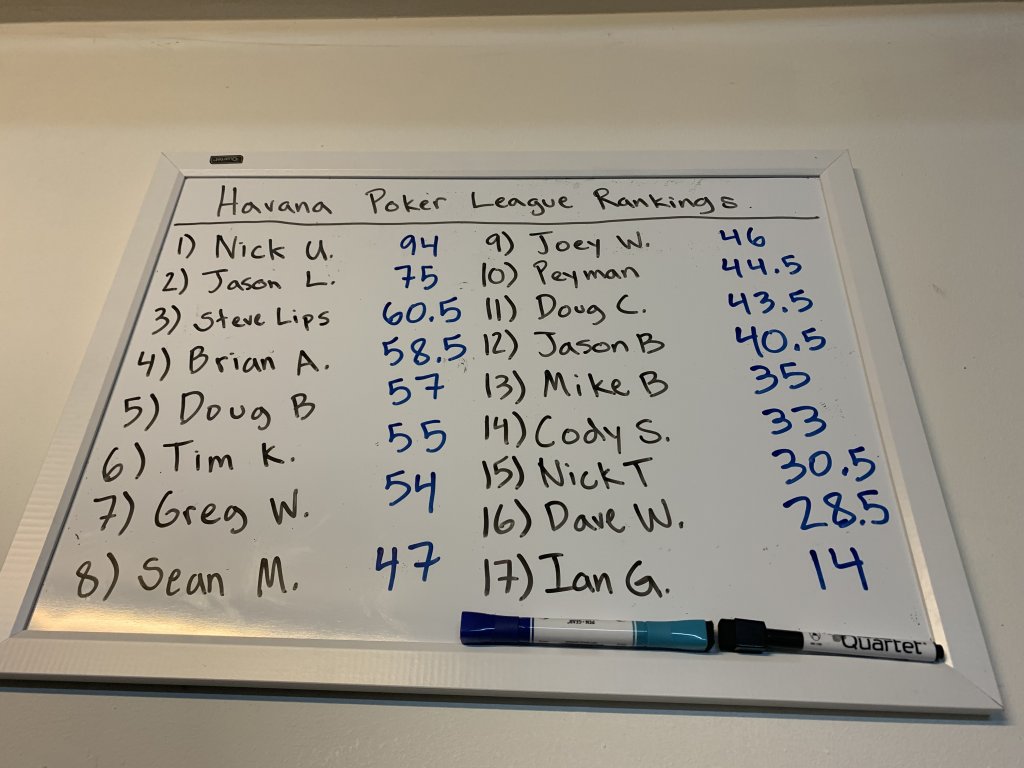 Havana Poker League Rankings
1) Nick U. 94
2) Jason L. 75
3) Steve Lips 60.5
4) Brian A. 58.5
5) Doug B 57
6) Tim K. 55
7) Greg W. 54
8) Sean M. 47
9) Joey W. 46
10) Peyman 44.5
11) Doug C. 43.5
12) Jason B 40.5
13) Mike B 35
14) Cody S. 33
15) Nick T 30.5
16) Dave W. 28.5
17) Ian G. 14
PEN+GEAR
Quartet
Quartet